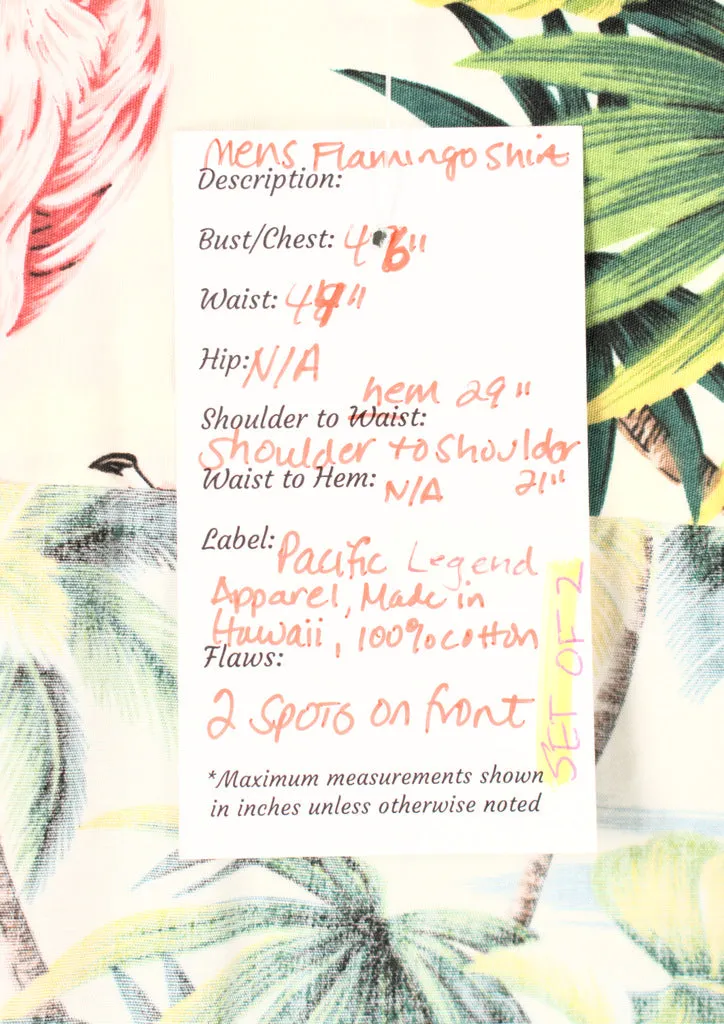 Mens Flamingo Shirt
Description:
Bust/Chest: 46"
Waist: 49"
Hip: N/A
hem 29"
Shoulder to Waist:
Shoulder to Shoulder
21"
Waist to Hem: N/A
Label: Pacific Legend
Apparel, Made in
Hawaii, 100% cotton
Flaws:
2 spots on front
SET OF 2
*Maximum measurements shown
in inches unless otherwise noted